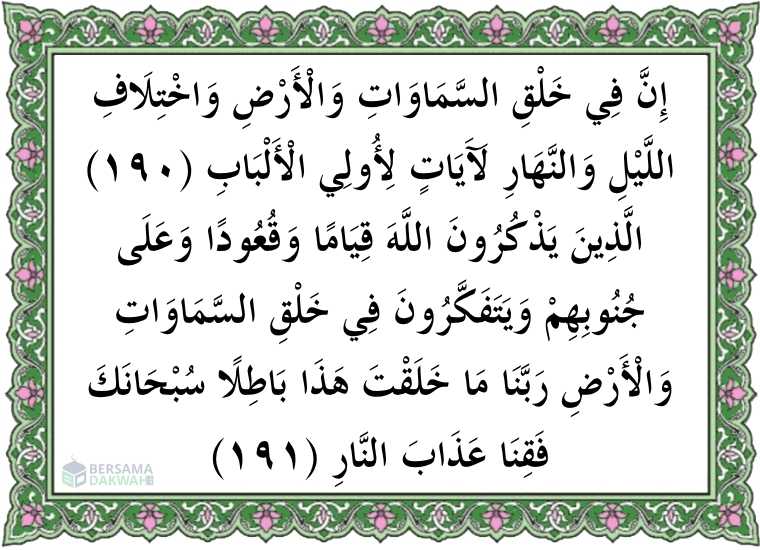 إِنَّ فِي خَلْقِ السَّمَاوَاتِ وَالْأَرْضِ وَاخْتِلَافِ
اللَّيْلِ وَالنَّهَارِ لَآَيَاتٍ لِأُولِي الْأَلْبَابِ (١٩٠)
الَّذِينَ يَذْكُرُونَ اللَّهَ قِيَامًا وَقُعُودًا وَعَلَى
جُنُوبِهِمْ وَيَتَفَكَّرُونَ فِي خَلْقِ السَّمَاوَاتِ
وَالْأَرْضِ رَبَّنَا مَا خَلَقْتَ هَذَا بَاطِلًا سُبْحَانَكَ
فَقِنَا عَذَابَ النَّارِ (١٩١)
BERSAMA
DAKWAH